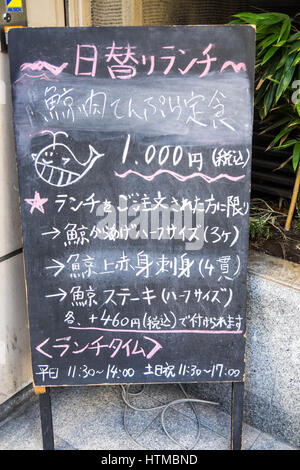 日替りランチ
鯨肉てんぷら定食
1.000円(税込)
☆ランチをご注文された方に限り
→鯨からあげハーフサイズ(3ヶ)
→鯨上赤身刺身(4貫)
→鯨ステーキ(ハーフサイズ)
各、+460円(税込)で付けられます
<ランチタイム>
平日 11:30~14:00 土日祝 11:30~17:00
alamy
Image ID: HTMBND
www.alamy.com